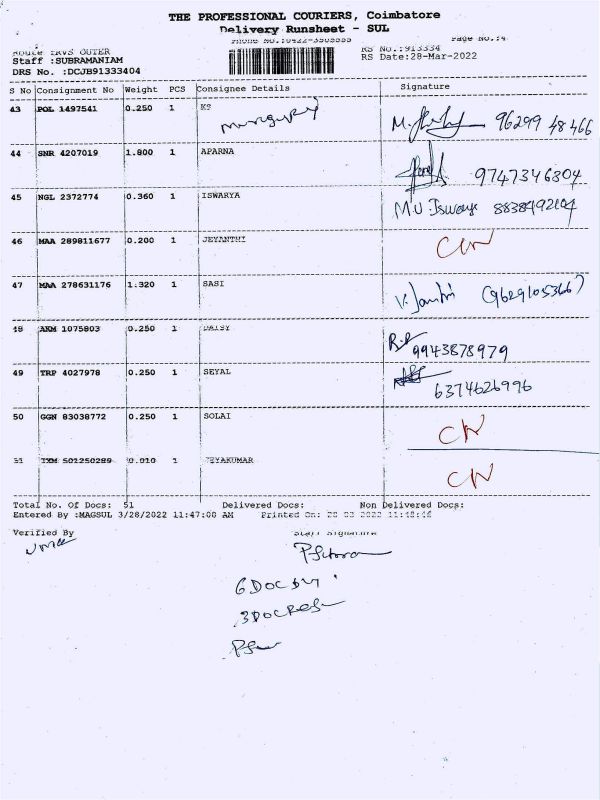 THE PROFESSIONAL COURIERS, Coimbatore
Delivery Runsheet - SUL
Page No.:4
Route OUTER
RS No.:913334
Staff :SUBRAMANIAM
RS Date:28-Mar-2022
DRS No. :DCJB91333404
S No Consignment No Weight PCS Consignee Details Signature
43 POL 1497541 0.250 1 KS 96299 48466
44 SNR 4207019 1.800 1 APARNA 9747346304
45 NGL 2372774 0.360 1 ISWARYA M.U. 8838492104
46 MAA 289811677 0.200 1 JEYANTHI CN
47 MAA 278631176 1.320 1 SASI (9629105366)
48 ANM 1075803 0.250 1 DAISY 9943878979
49 TRP 4027978 0.250 1 SEYAL 6374626996
50 GGN 83038772 0.250 1 SOLAI CN
51 TXM 501250289 0.010 1 JEYAKUMAR CN
Total No. Of Docs: 51 Delivered Docs: Non Delivered Docs:
Entered By :MAGSUL 3/28/2022 11:47:08 AM Printed On: 28 03 2022 11:48:46
Verified By Staff Signature
6 DOC
3 DOC